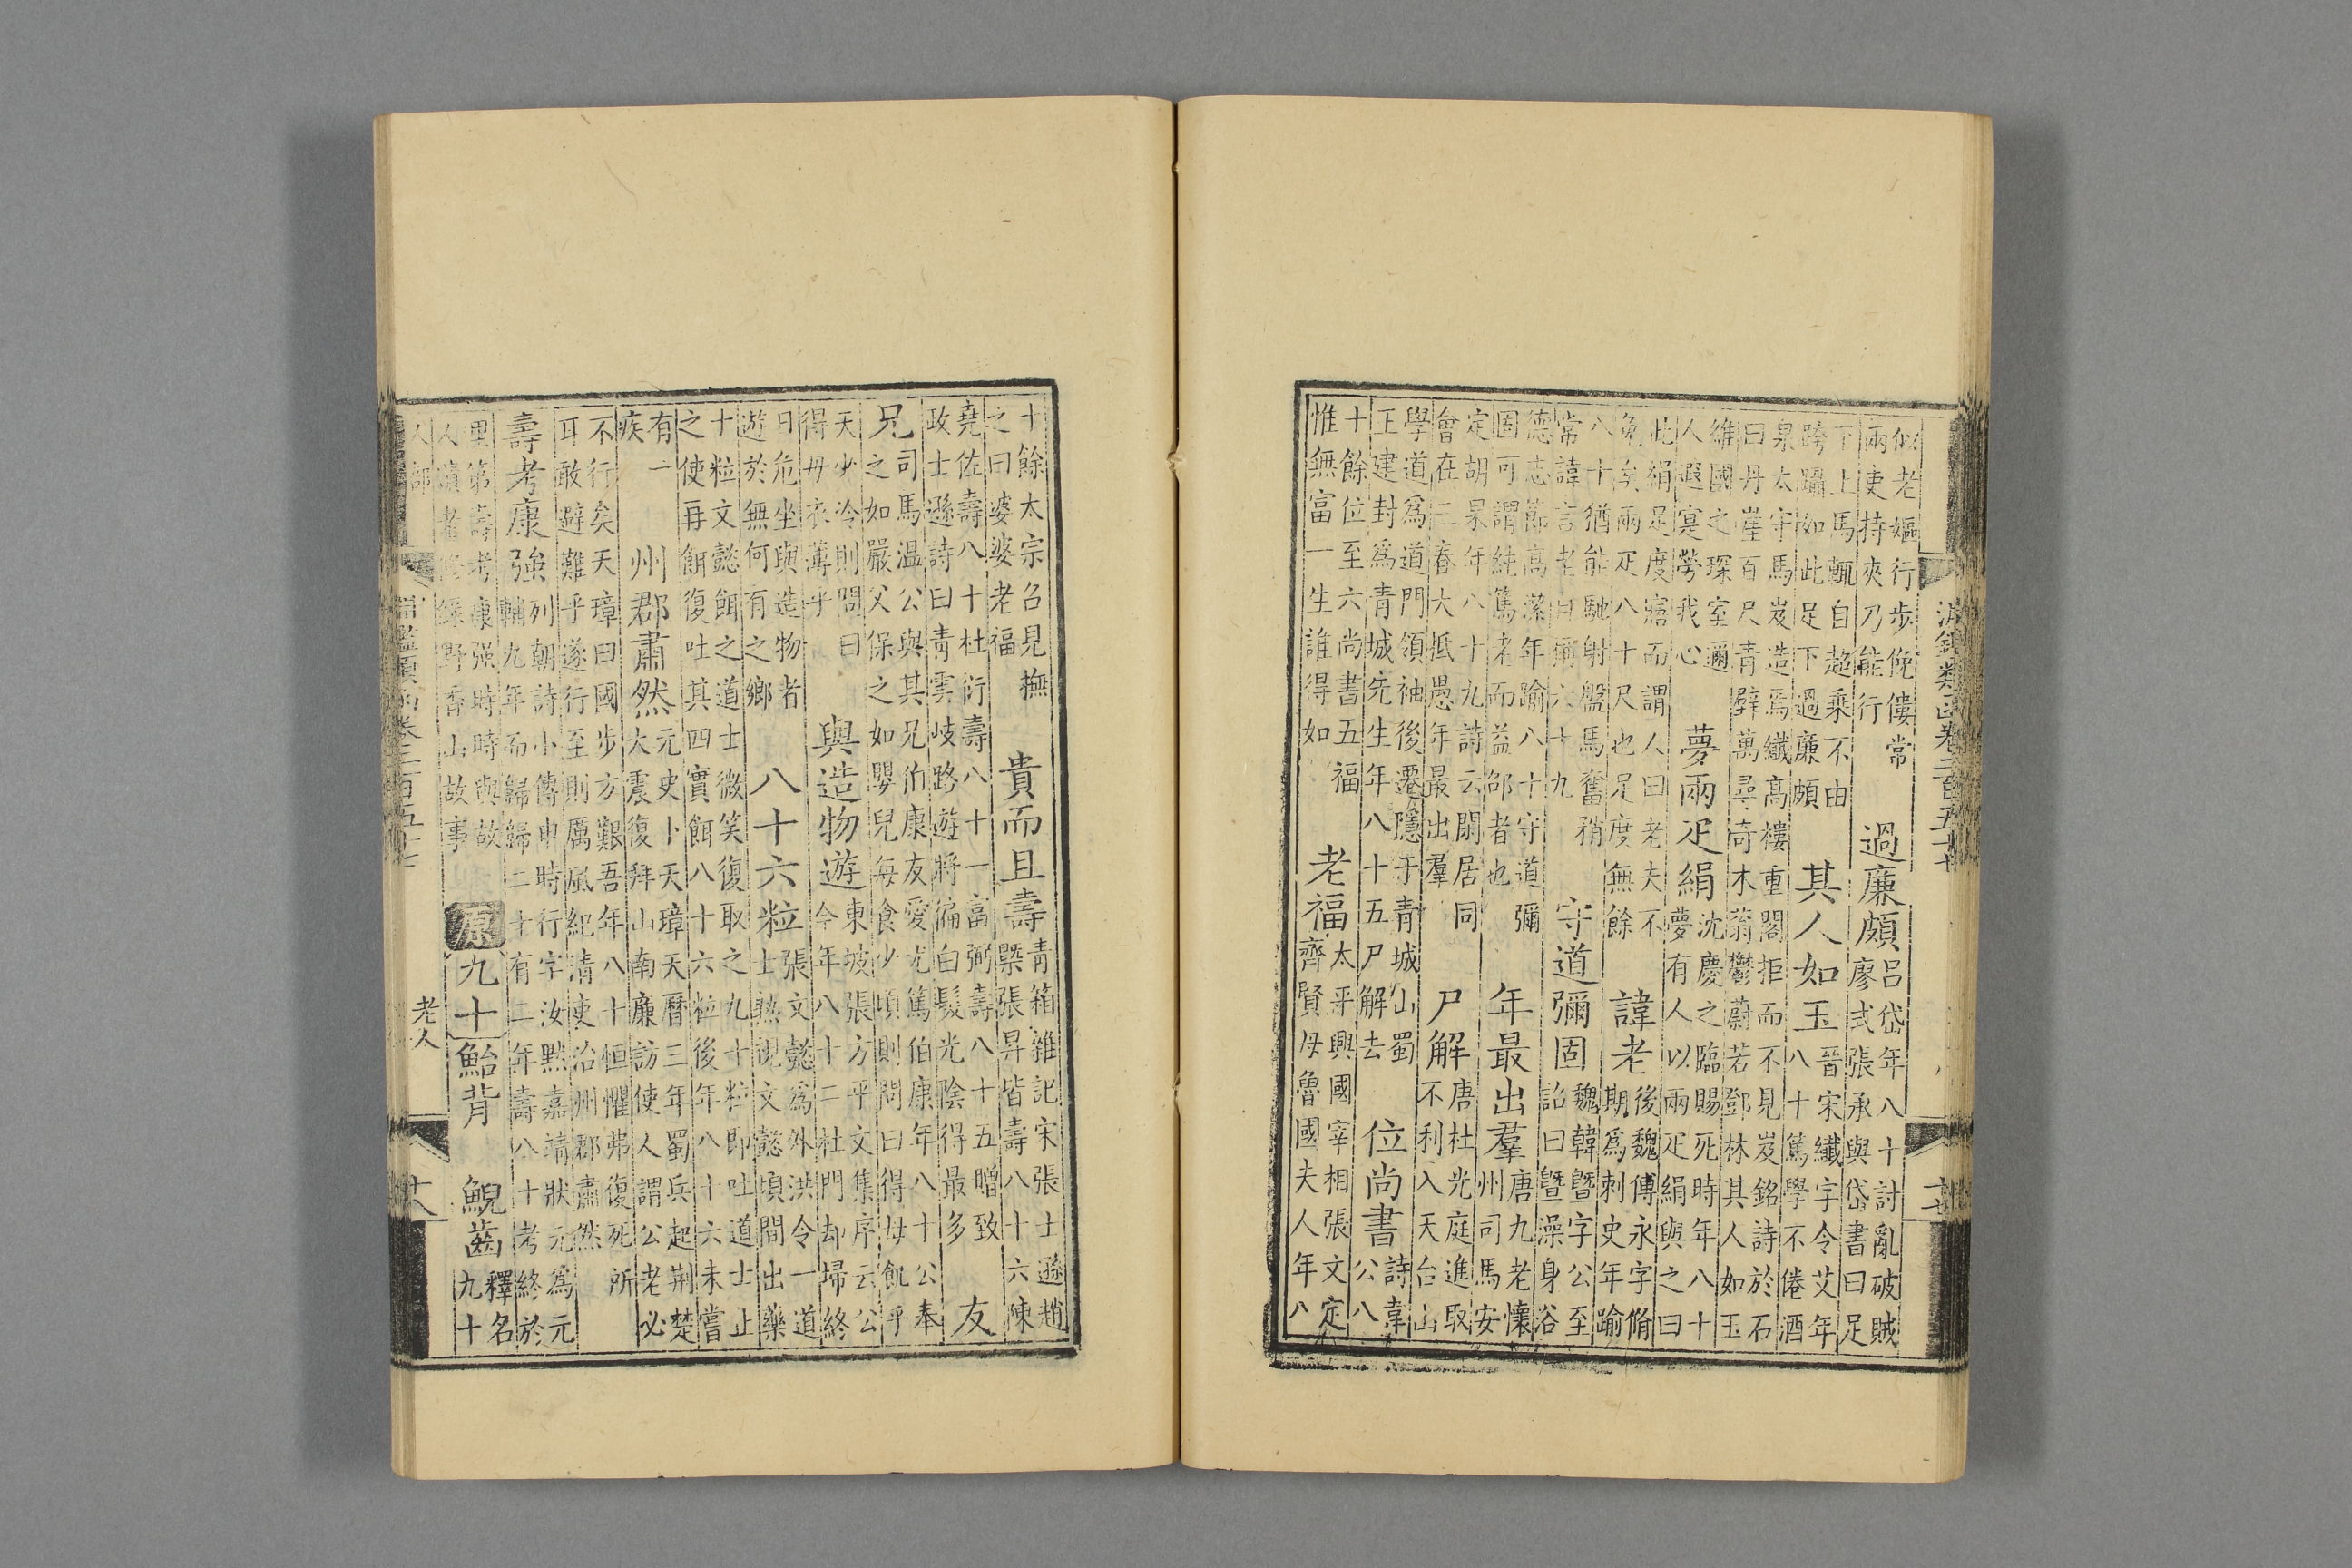 淵鑑類函卷二百五十七
十七
似老嫗行步俛僂常
兩吏持夾乃能行
過廉頗
呂岱年八十討亂破賊
廖式張承與岱書曰足
下上馬輒自超乘不由
跨躡如此足下過廉頗
其人如玉
晉宋纖字令艾年
八十篤學不倦酒
泉太守馬岌造焉纖高樓重閣拒而不見岌銘詩於石
曰丹崖百尺青壁萬尋奇木蓊鬱蔚若鄧林其人如玉
維國之琛室邇
人遐寔勞我心
夢兩疋絹
沈慶之臨賜死時年八十
夢有人以兩疋絹與之曰
此絹足度寤而謂人曰老夫不
免矣兩疋八十尺也足度無餘
諱老
後魏傅永字脩
期爲刺史年踰
八十猶能馳射盤馬奮矟
常諱言老自稱六十九
守道彌固
魏韓暨字公至
詔曰暨澡身浴
德志節高潔年踰八十守道彌
固可謂純篤老而益邵者也
年最出羣
唐九老懷
州司馬安
定胡杲年八十九詩云閑居同
會在三春大抵愚年最出羣
尸解
唐杜光庭進取
不利入天台山
學道爲道門領袖後遷隱于青城山蜀
王建封爲青城先生年八十五尸解去
位尚書
詩韋
公八
十餘位至六尚書五福
惟無富一生誰得如
老福
太平興國宰相張文定
齊賢母魯國夫人年八
十餘太宗召見撫
之曰婆婆老福
貴而且壽
青箱雜記宋張士遜趙
槩張昇皆壽八十六陳
堯佐壽八十杜衍壽八十一富弼壽八十五贈致
政士遜詩曰青雲岐路遊將徧白髮光陰得最多
友
兄
司馬温公與其兄伯康友愛尤篤伯康年八十公奉
之如嚴父保之如嬰兒每食少頃則問曰得毋飢乎
天少冷則問曰
得毋衣薄乎
與造物遊
東坡張方平文集序云公
今年八十二杜門却埽終
日危坐與造物者
遊於無何有之鄉
八十六粒
張文懿爲外洪令一道
士熟視文懿頃間出藥
十粒文懿餌之道士微笑復取之九十粒即吐道士止
之使再餌復吐其四實餌八十六粒後年八十六未嘗
有一
疾
州郡肅然
元史卜天璋天曆三年蜀兵起荆楚
大震復拜山南廉訪使人謂公老必
不行矣天璋曰國步方艱吾年八十恒懼弗復死所
耳敢避難乎遂行至則厲風紀清吏治州郡肅然
壽考康強
列朝詩小傳申時行字汝默嘉靖狀元爲元
輔九年而歸歸二十有二年壽八十考終於
里第壽考康强時時與故
人遺老修綠野香山故事
原
九十
鮐背
鯢齒
釋名
九十
人部
淵鑑類函卷二百五十七
老人
十八